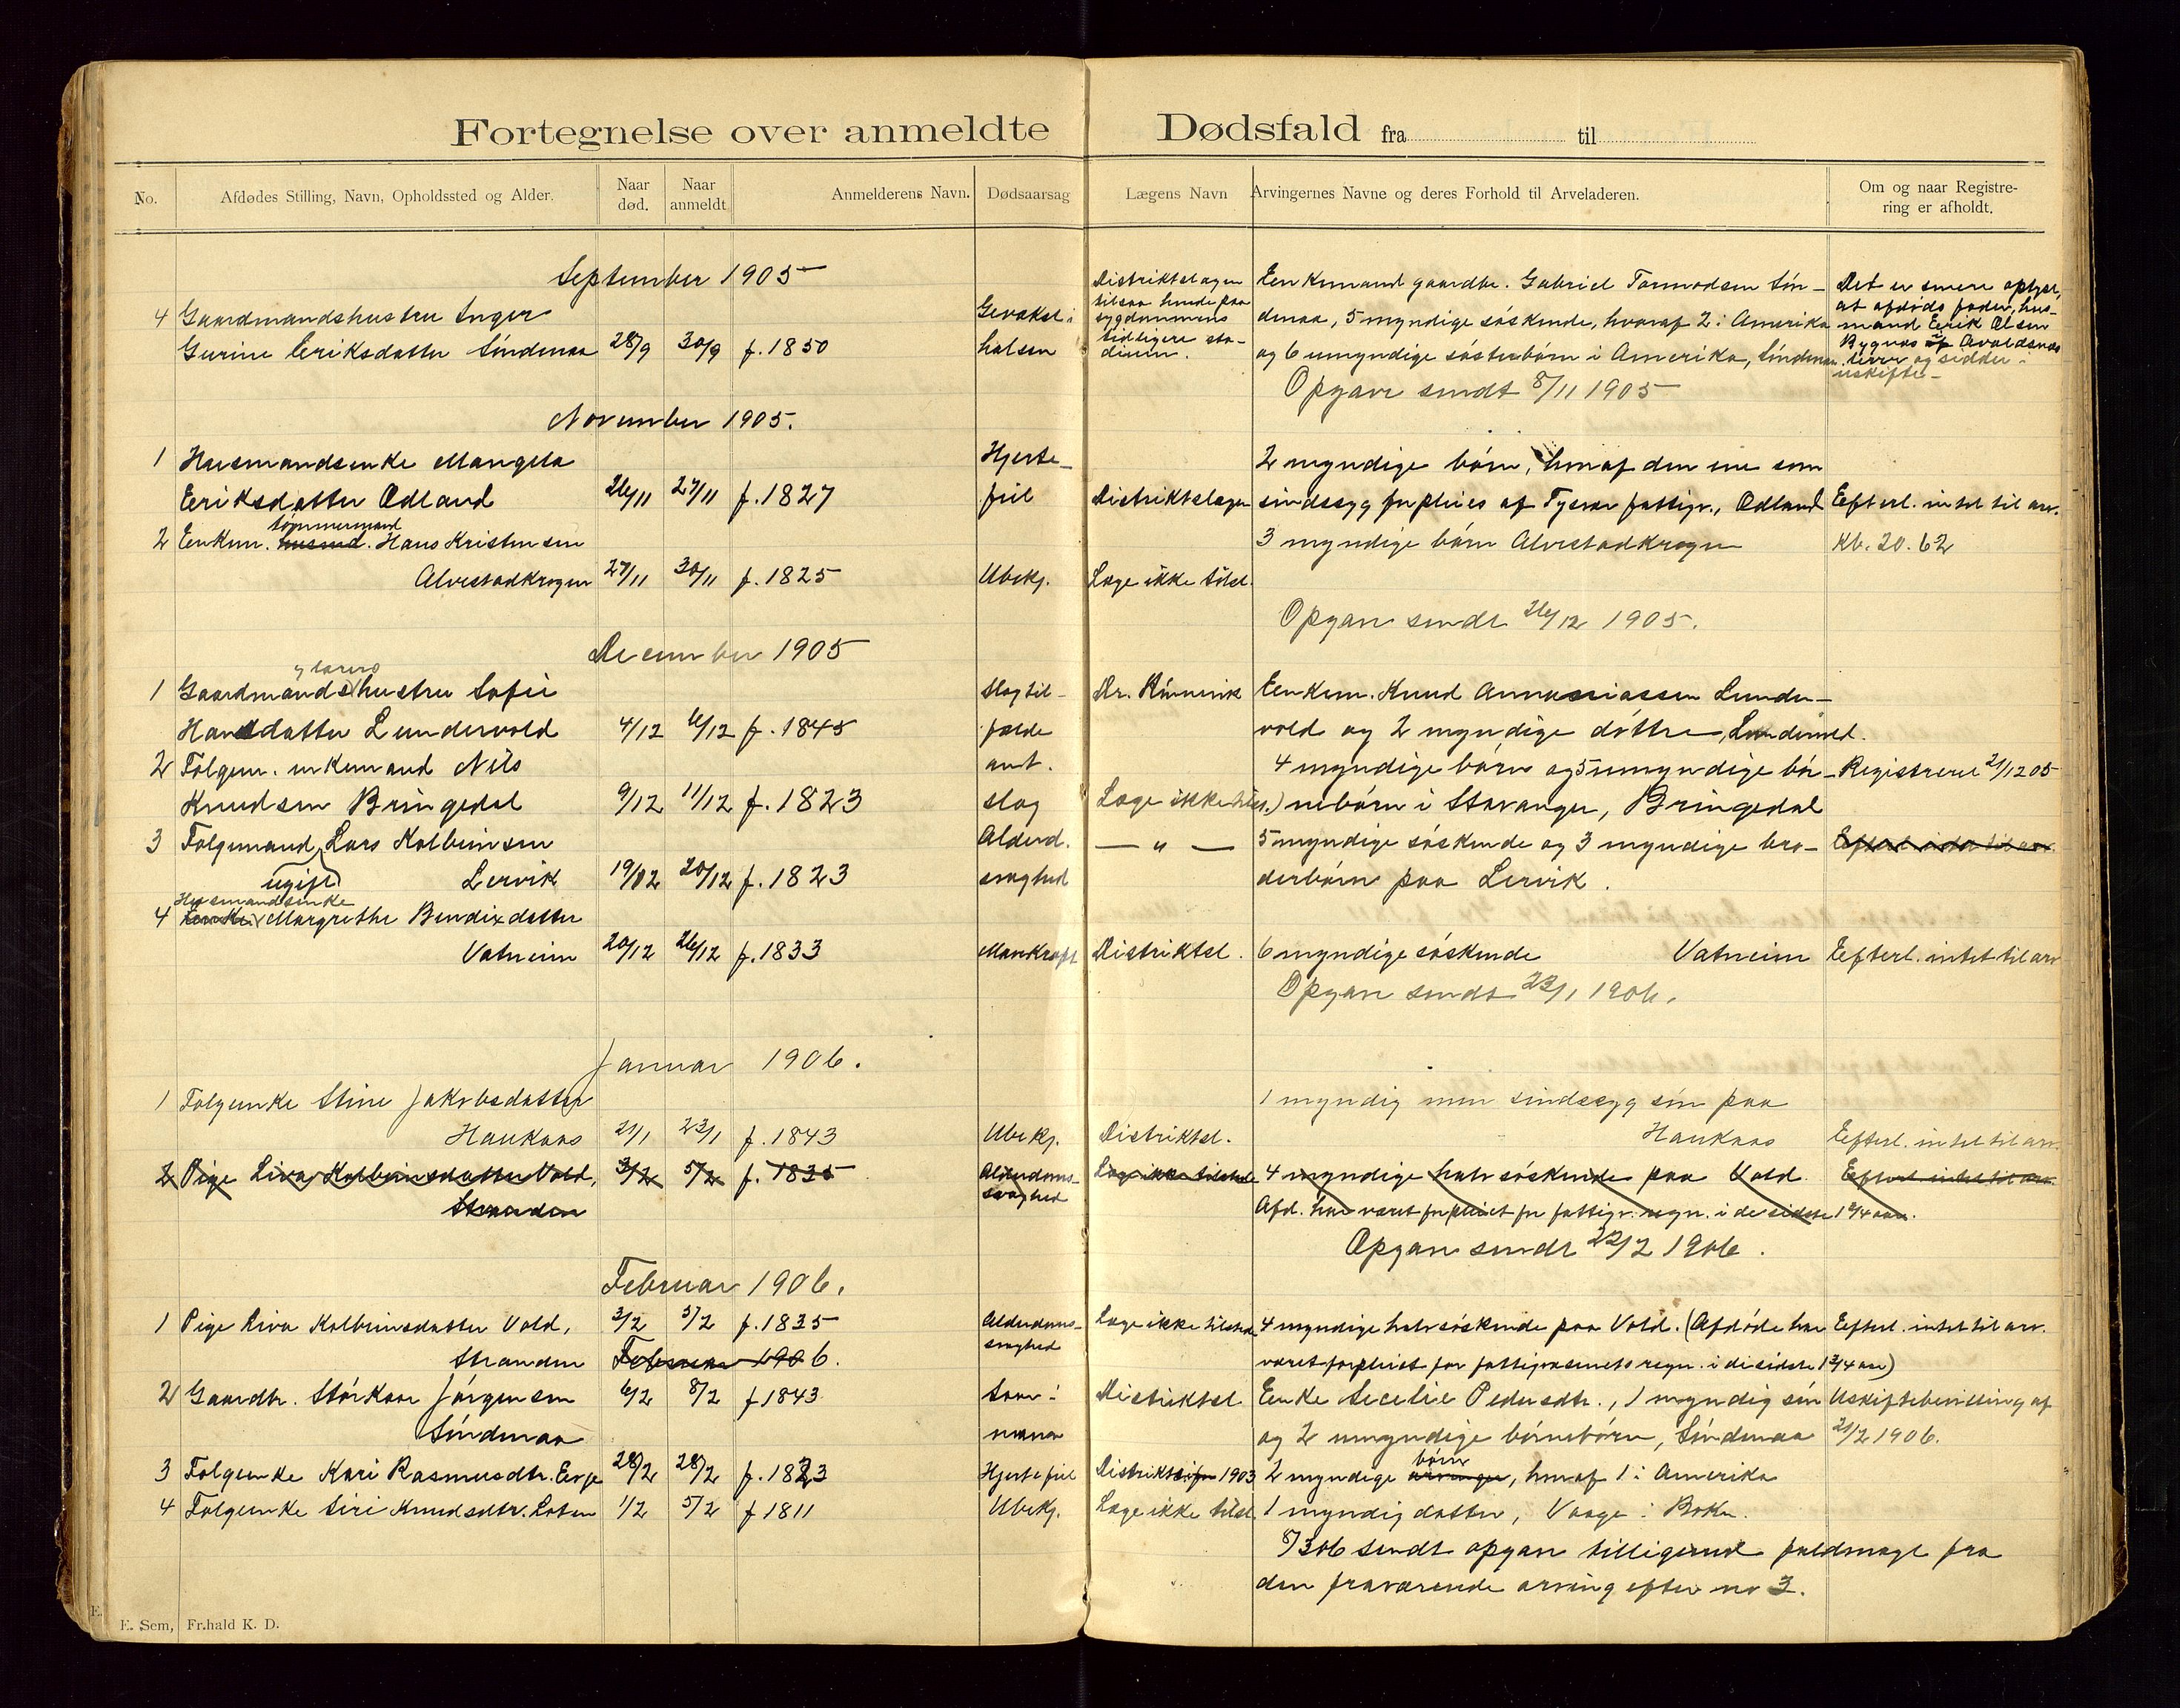 Fortegnelse over anmeldte Dødsfald fra til
No. Afdødes Stilling, Navn, Opholdssted og Alder. Naar død. Naar anmeldt Anmelderens Navn. Dødsaarsag Lægens Navn Arvingernes Navne og deres Forhold til Arveladeren. Om og naar Registrering er afholdt.
September 1905
4 Gaardmandshustru Inger Gevækst i
Gurine Eriksdatter Søndenaa 28/9 30/9 f. 1850 halsen
Distriktslægen
tilsaa hende paa
sygdommens
tidligere sta-
dium.
Enkemand gaardbr. Gabriel Tormodsen Søn-
denaa, 5 myndige søskende, hvoraf 2 i Amerika
og 6 umyndige søsterbørn i Amerika, Søndenaa
Det er senere oplyst,
at afdøds fader, hus-
mand Eerik Olsen
Bygnæs Avaldsnæs
lever og sidder i
uskifte
Opgave sendt 8/11 1905
November 1905.
1 Husmandsenke Mangela Hjerte- 2 myndige børn, hvoraf den ene som
Eeriksdatter Ødland 26/11 27/11 f. 1827 feil Distriktslægen sindssyg forpleies af Tysvær fattigv., Ødland Efterl. intet til arv.
tømmermand
2 Enkem. husmd. Hans Kristensen 3 myndige børn Alvestadkrogen Kb. 20.62
Alvestadkrogen 27/11 30/11 f. 1825 Ubekj. Læge ikke tilst.
Opgave sendt 26/12 1905.
December 1905
1 Gaardmandshustru Sofie Slagtil- Dr. Rønnevik Enkem. Knud Annaniassen Lunder-
Hansdatter Lundervold 4/12 6/12 f. 1845 fælde vold og 2 myndige døttre, Lundervold.
2 Følgem. enkemand Nils ant. 4 myndige børn og 5 umyndige bør- Registreret 21/12 05
Knudsen Bringedal 9/12 11/12 f. 1823 slag Læge ikke tilst.) nebørn i Stavanger, Bringedal
3 Følgemand Lars Kolbeinsen Alderd. — " — 5 myndige søskende og 3 myndige bro- Efterl. intet til arv.
ugift Lervik 19/12 20/12 f. 1823 svaghed derbørn paa Lervik.
Husmandsenke
4 Enke Margrethe Bendixdatter
Vatneim 20/12 26/12 f. 1833 Mavekræft Distriktsl. 6 myndige søskende Vatneim Efterl. intet til arv
Opgave sendt 23/1 1906.
Januar 1906.
1 Følgenke Stine Jakobsdatter 1 myndig men sindssyg søn paa
Haukaas 21/1 23/1 f. 1843 Ubekj. Distriktsl. Haukaas Efterl. intet til arv.
2 Pige Liva Kolbeinsdatter Vold, 3/2 5/2 f. 1835 Alderdoms- Læge ikke tilstede 4 myndige halvsøskende paa Vold. Efterl. intet til arv.
Stranden svaghed Afd. har været forpleiet for fattigv. regn. i de sidste 1 3/4 aar.
Opgave sendt 22/2 1906.
Februar 1906.
1 Pige Liva Kolbeinsdatter Vold, 3/2 5/2 f. 1835 Alderdoms- Læge ikke tilstede 4 myndige halvsøskende paa Vold. (Afdøde har Efterl. intet til arv.
Stranden Februar 1906. svaghed været forpleiet for fattigvæsenets regn. i de sidste 1 3/4 aar)
2 Gaardbr. Størkaar Jørgensen 6/2 8/2 f 1843 Saar i Distriktsl. Enke Secelie Pedersdtr., 1 myndig søn Uskiftebevilling af
Søndenaa maven og 2 umyndige børnebørn, Søndenaa 21/2 1906.
børn
3 Følgenke Kari Rasmusdtr. Eerge 28/2 28/2 f. 1823 Hjertefeil 1903 2 myndige arvinger, hvoraf 1 i Amerika
4 Følgenke Siri Knudsdtr. Loten 1/2 5/2 f 1811 Ubekj. Læge ikke tilst. 1 myndig datter, Vaage i Bokn.
8/3 06 sendt opgave tilligemed fuldmagt fra
den fraværende arving efter no 3.
E. Sem, Fr.hald K. D.